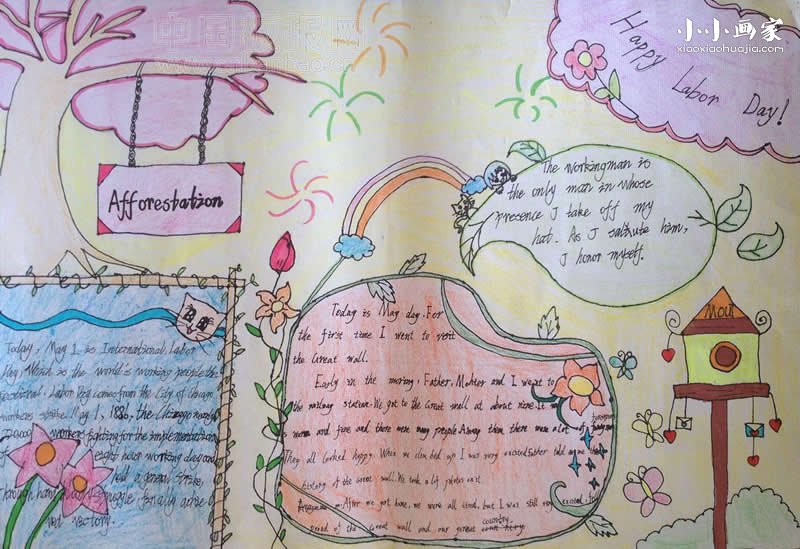 小小画家
xiaoxiaohuajia.com
Happy Labor Day!
Afforestation
The workingman is
the only man in whose
presence I take off my
hat. As I salute him,
I honor myself.
Today is May day. For
the first time I went to visit
the Great wall.
Early in the moring, Father, Mohter and I went to
the railway station. We got to the Great wall at about nine. It
warm and fine and there were many people. Among them there were a lot of
They all looked happy. When we climbed up I was very excited. Father told me the
history of the Great wall. We took a lot
After we got home, we were all tired, but I was still very excited
proud of the Great wall and our great country.
Today, May 1 is International Labor
Day, Which is the world is working people
Labor Day comes from the City of Chicago
workers strike. May 1, 1886, the Chicago
workers fighting for the implementation
of eight hour working day and
held a general strike,
Through struggle, finally
victory.